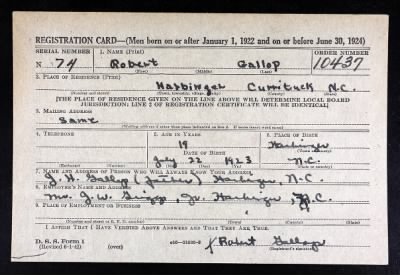 REGISTRATION CARD—(Men born on or after January 1, 1922 and on or before June 30, 1924)
SERIAL NUMBER 1. NAME (Print) ORDER NUMBER
N 74 Robert Gallop 10437
(First) (Middle) (Last)
2. PLACE OF RESIDENCE (Print)
Harbinger Currituck N.C.
(Number and street) (Town, township, village, or city) (County) (State)
[THE PLACE OF RESIDENCE GIVEN ON THE LINE ABOVE WILL DETERMINE LOCAL BOARD
JURISDICTION; LINE 2 OF REGISTRATION CERTIFICATE WILL BE IDENTICAL]
3. MAILING ADDRESS
Same
(Mailing address if other than place indicated on line 2. If same insert word same)
4. TELEPHONE 5. AGE IN YEARS 6. PLACE OF BIRTH
19 Harbinger
DATE OF BIRTH (Town or county)
July 22 1923 N.C.
(Exchange) (Number) (Mo.) (Day) (Yr.) (State or country)
7. NAME AND ADDRESS OF PERSON WHO WILL ALWAYS KNOW YOUR ADDRESS
J. H. Gallop (father) Harbinger, N.C.
8. EMPLOYER'S NAME AND ADDRESS
J.W. Jr. Harbinger, N.C.
9. PLACE OF EMPLOYMENT OR BUSINESS
(Number and street or R. F. D. number) (Town) (County) (State)
I AFFIRM THAT I HAVE VERIFIED ABOVE ANSWERS AND THAT THEY ARE TRUE.
D. S. S. Form 1
(Revised 6-1-42) (over) Robert Gallop